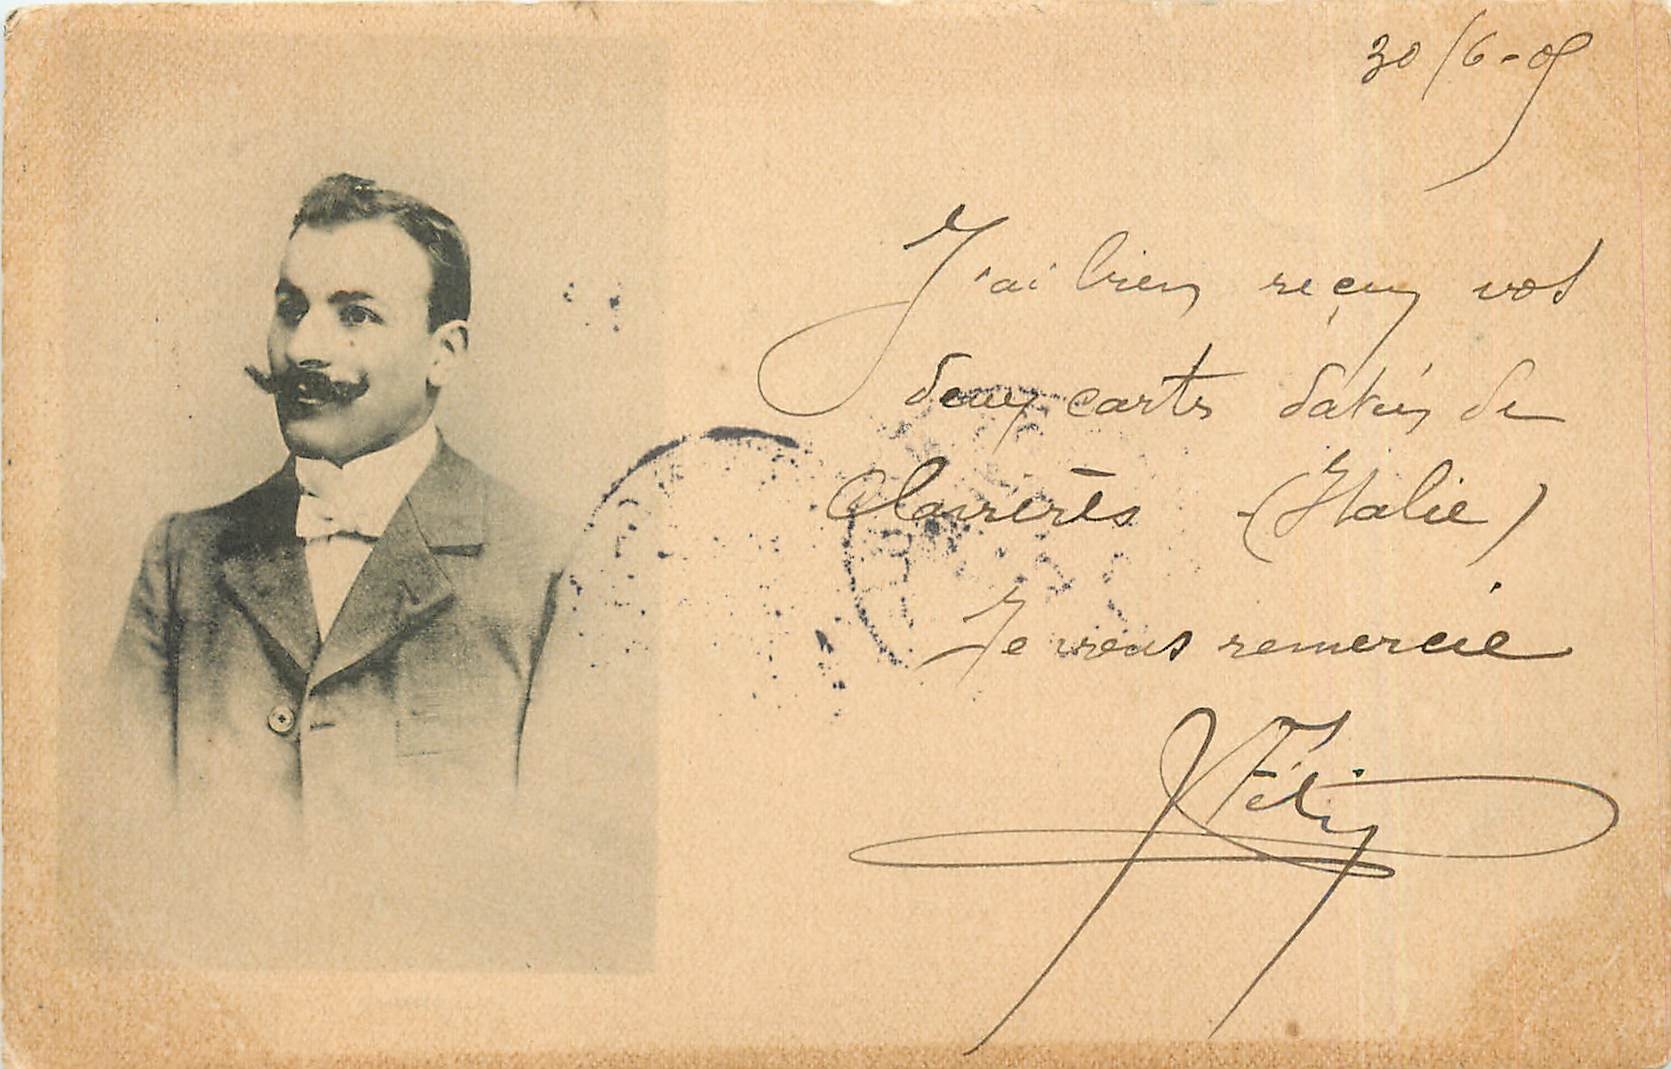 30/6-05
J'ai bien reçu vos
deux cartes datées de
(Italie)
Je vous remercie